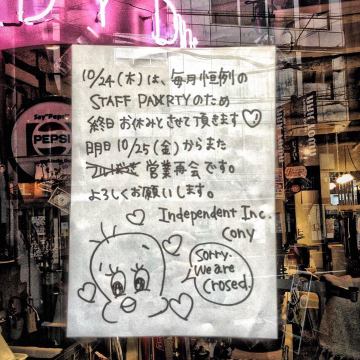 10/24(木)は、毎月恒例の
STAFF PAXRTYのため
終日お休みとさせて頂きます♡
明日10/25(金)からまた
営業再会です。
よろしくお願いします。
Independent Inc.
cony
Sorry.
We are
Crosed.
Say "Pepsi
PEPSI